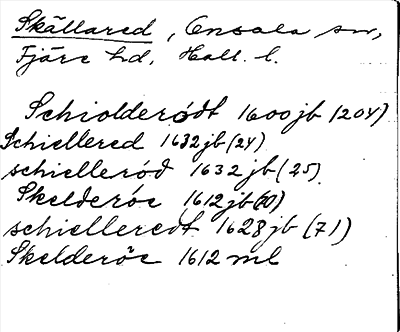 Skällared, Onsala sn,
Fjäre hd, Hall. l.
Schiolderödt 1600 jb (204)
Schiellered 1632 jb (24)
schielleröd 1632 jb (25)
Skelderöe 1612 jb (10)
schielleredt 1628 jb (71)
Skelderöe 1612 ml